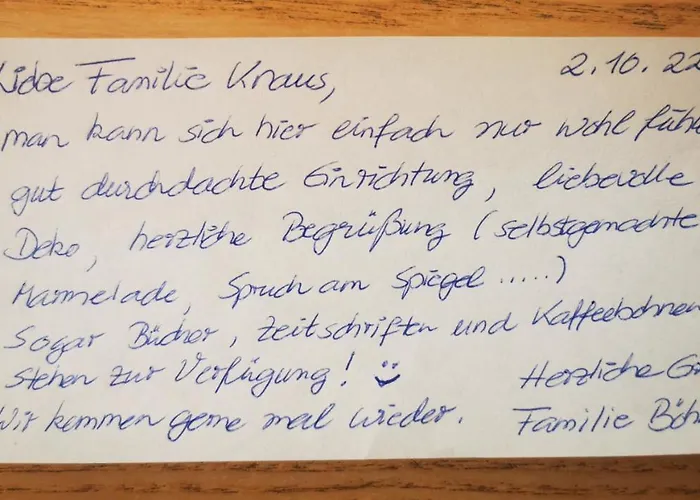 Liebe Familie Kraus, 2.10.22
man kann sich hier einfach nur wohl fühl
gut durchdachte Einrichtung, liebevolle
Deko, herzliche Begrüßung (selbstgemachte
Marmelade, Spruch am Spiegel.....)
Sogar Bücher, Zeitschriften und Kaffeebohnen
stehen zur Verfügung! Herzliche Gr
Wir kommen gerne mal wieder. Familie Böh